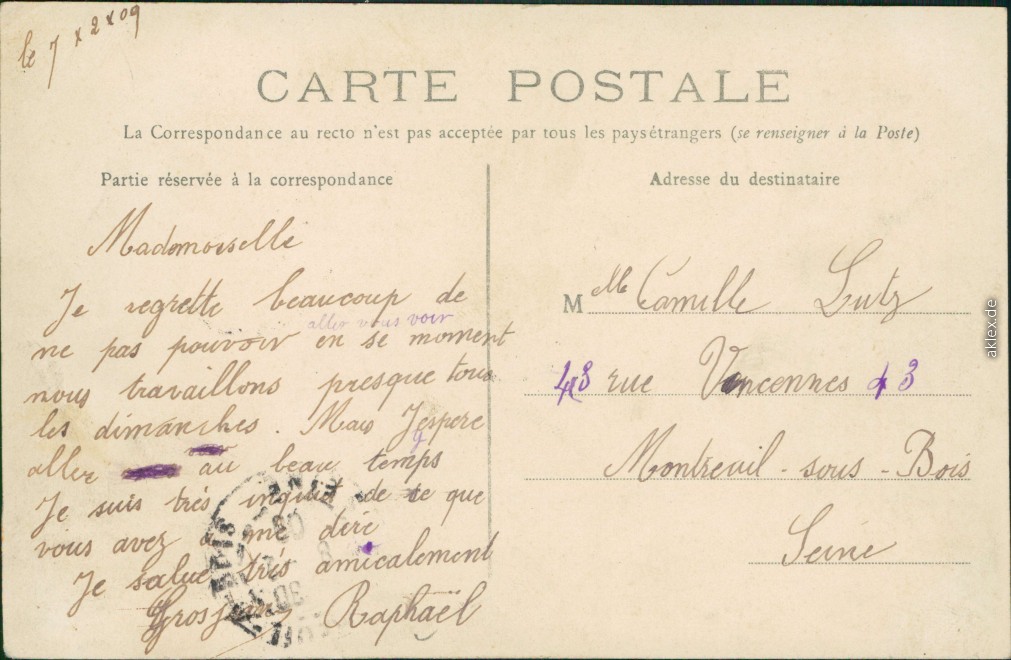 le 7 x 2 x 09
CARTE POSTALE
La Correspondance au recto n'est pas acceptée par tous les pays étrangers (se renseigner à la Poste)
Partie réservée à la correspondance
Mademoiselle
Je regrette beaucoup de
aller vous voir
ne pas pouvoir en se moment
nous travaillons presque tous
les dimanches. Mais J'espere
aller au beau temps
Je suis trés inquiet de ce que
vous avez a me dire
Je salue trés amicalement
Grosjean Raphaël
Adresse du destinataire
Mlle Camille Lutz
43 rue Vincennes 43
Montreuil-sous-Bois
Seine
aklex.de